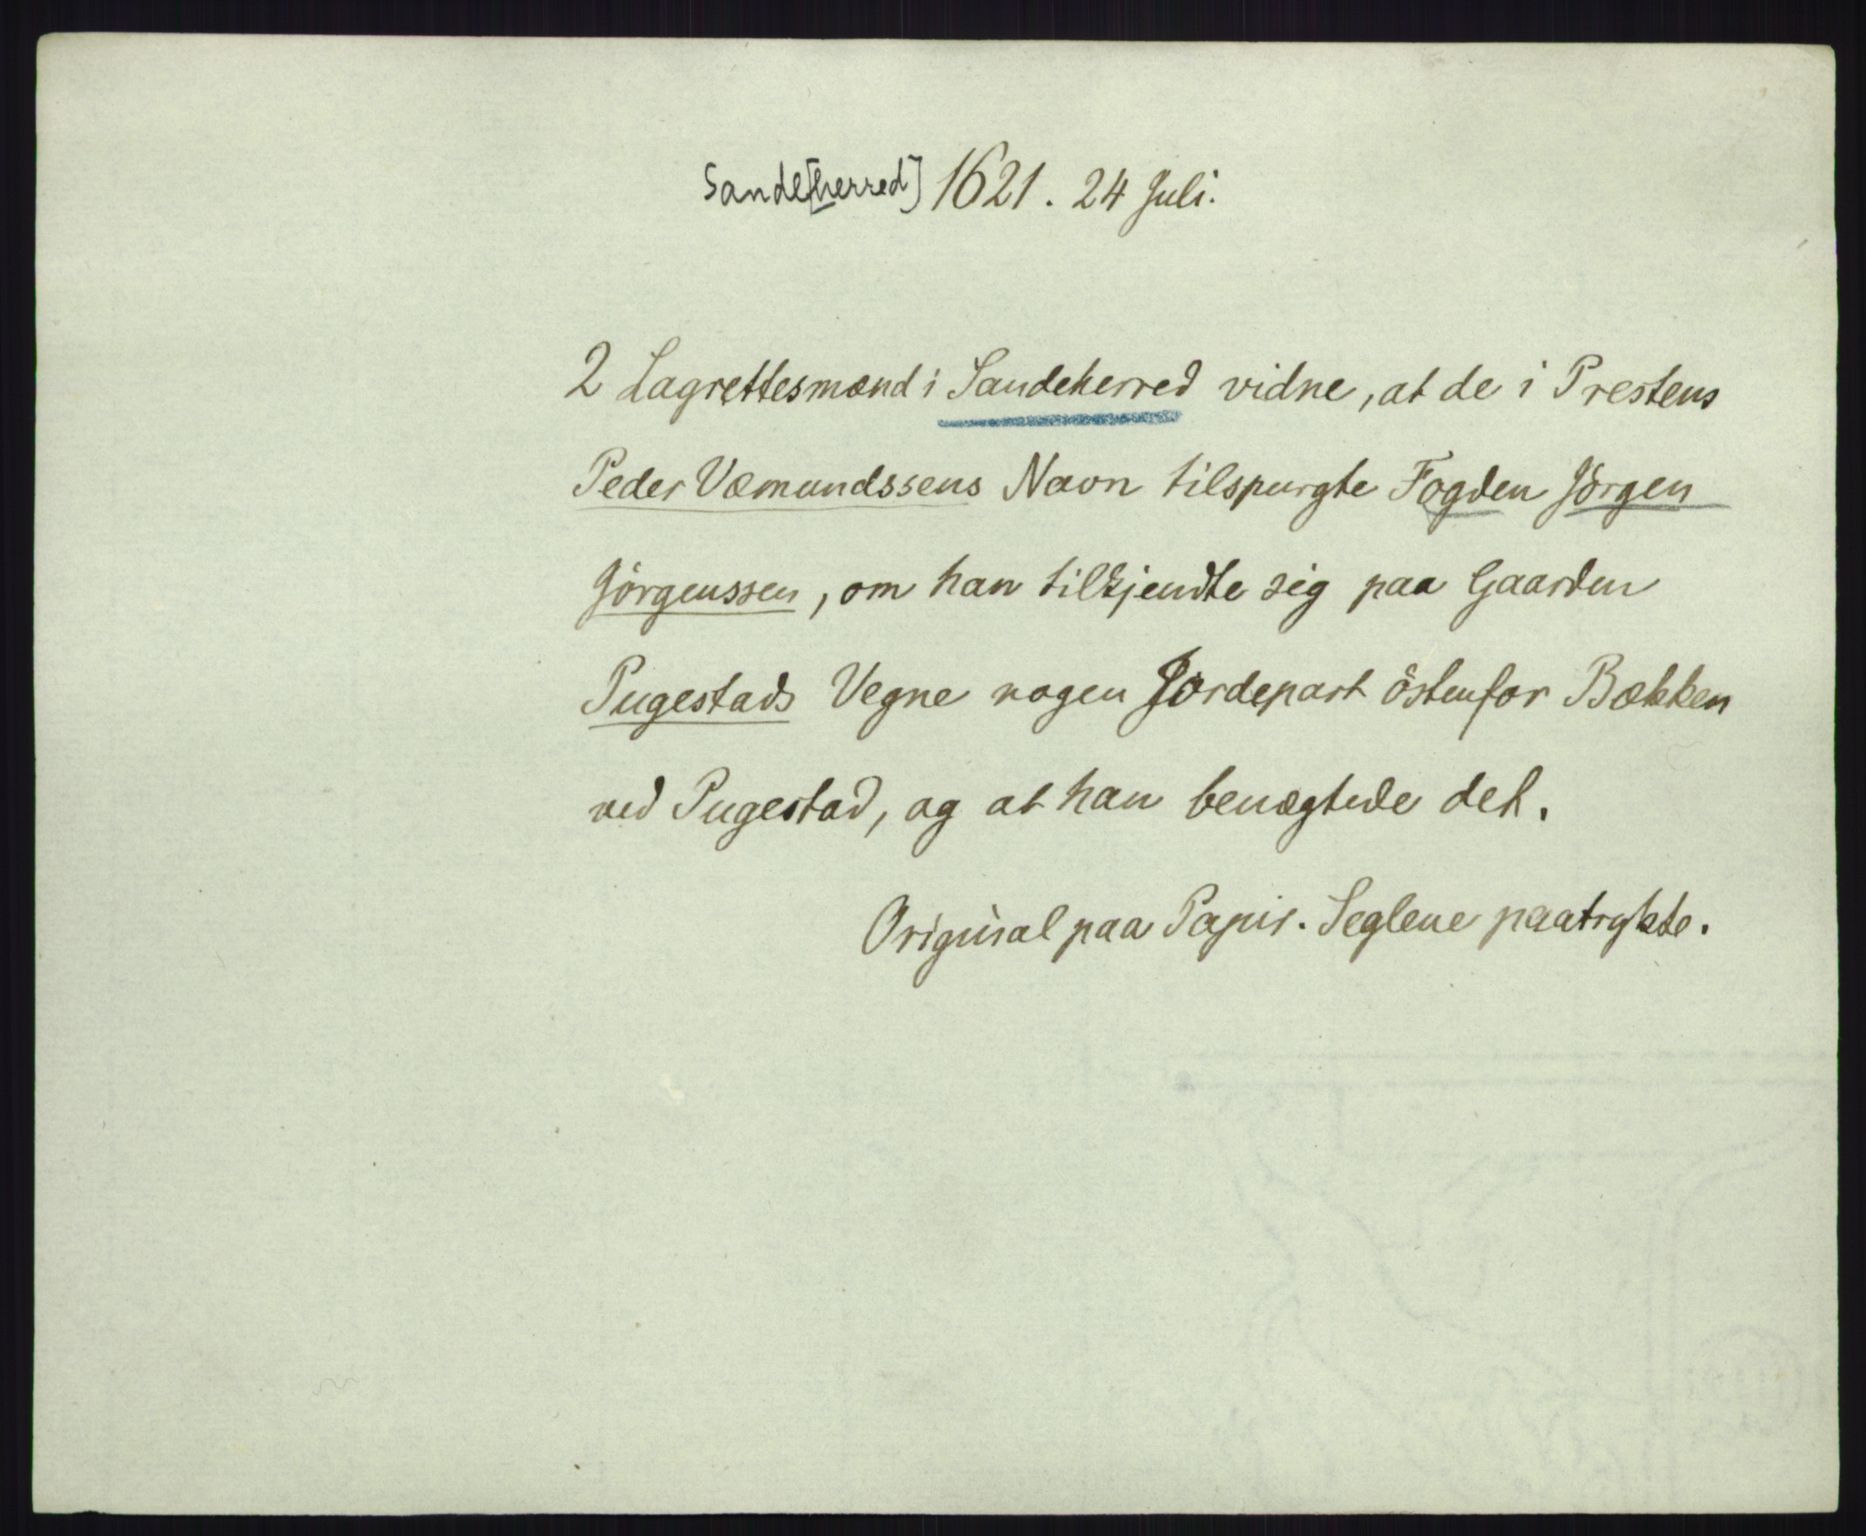 Sande[herred] 1621. 24 Juli.
2 Lagrettesmænd i Sandeherred vidne, at de i Prestens
Peder Væmundssens Navn tilspurgte Fogden Jörgen
Jörgenssen, om han tilkjendte sig paa Gaarden
Pugestads Vegne nogen Jordepart östenfor Bækken
ved Pugestad, og at han benægtede det.
Original paa Papir. Seglene paatrykte.